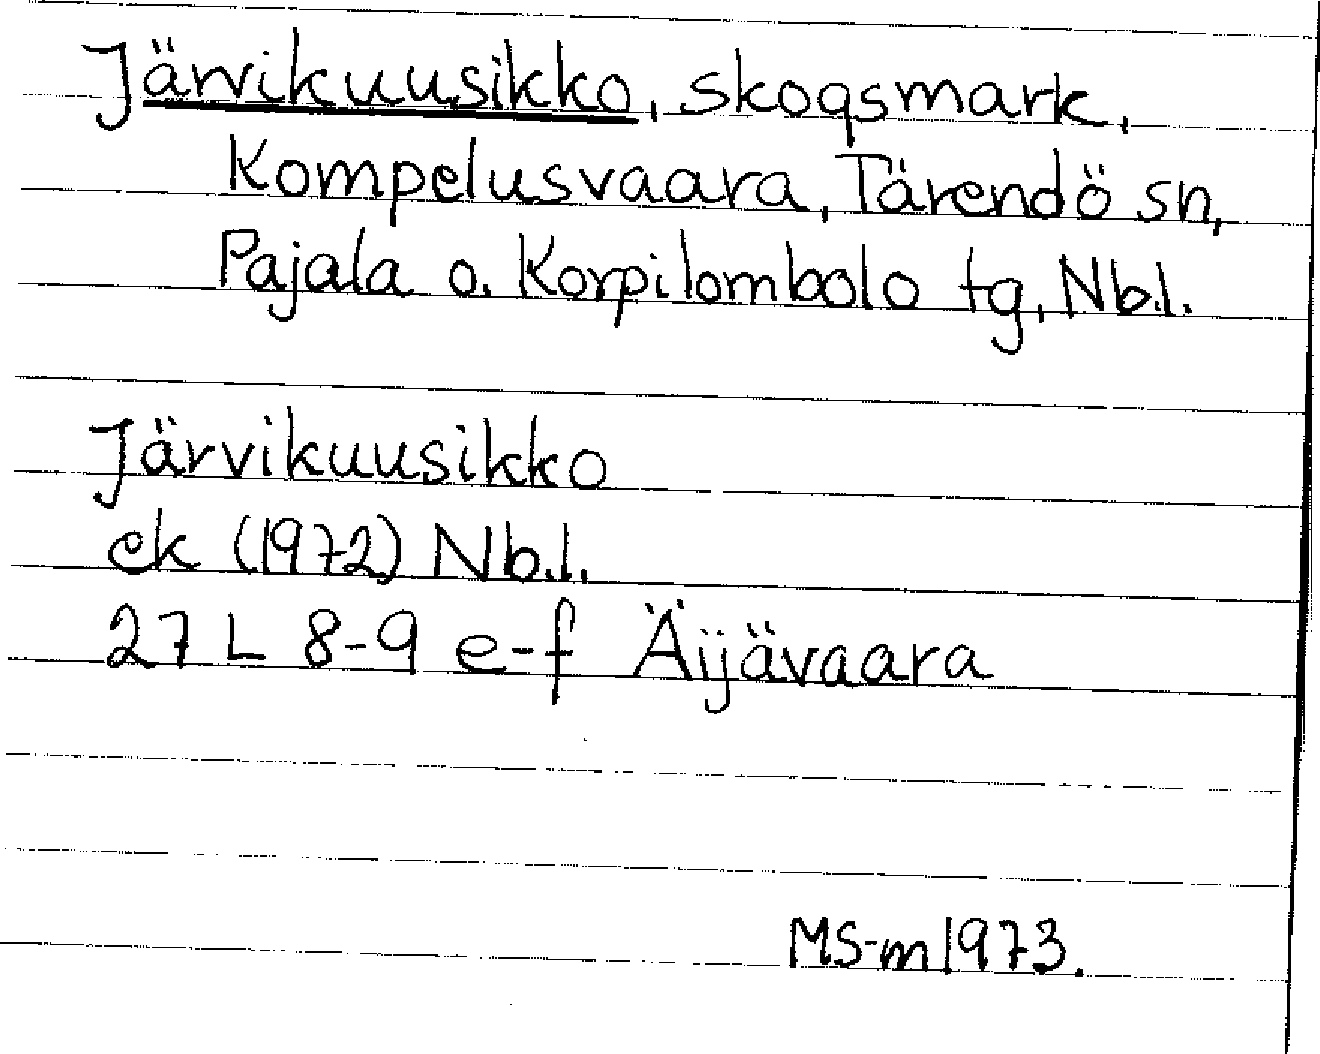 Järvikuusikko, skogsmark,
Kompelusvaara, Tärendö sn,
Pajala o. Korpilombolo tg, Nb.l.
Järvikuusikko
ek (1972) Nb.l.
27 L 8-9 e-f Äijävaara
MS-m 1973.